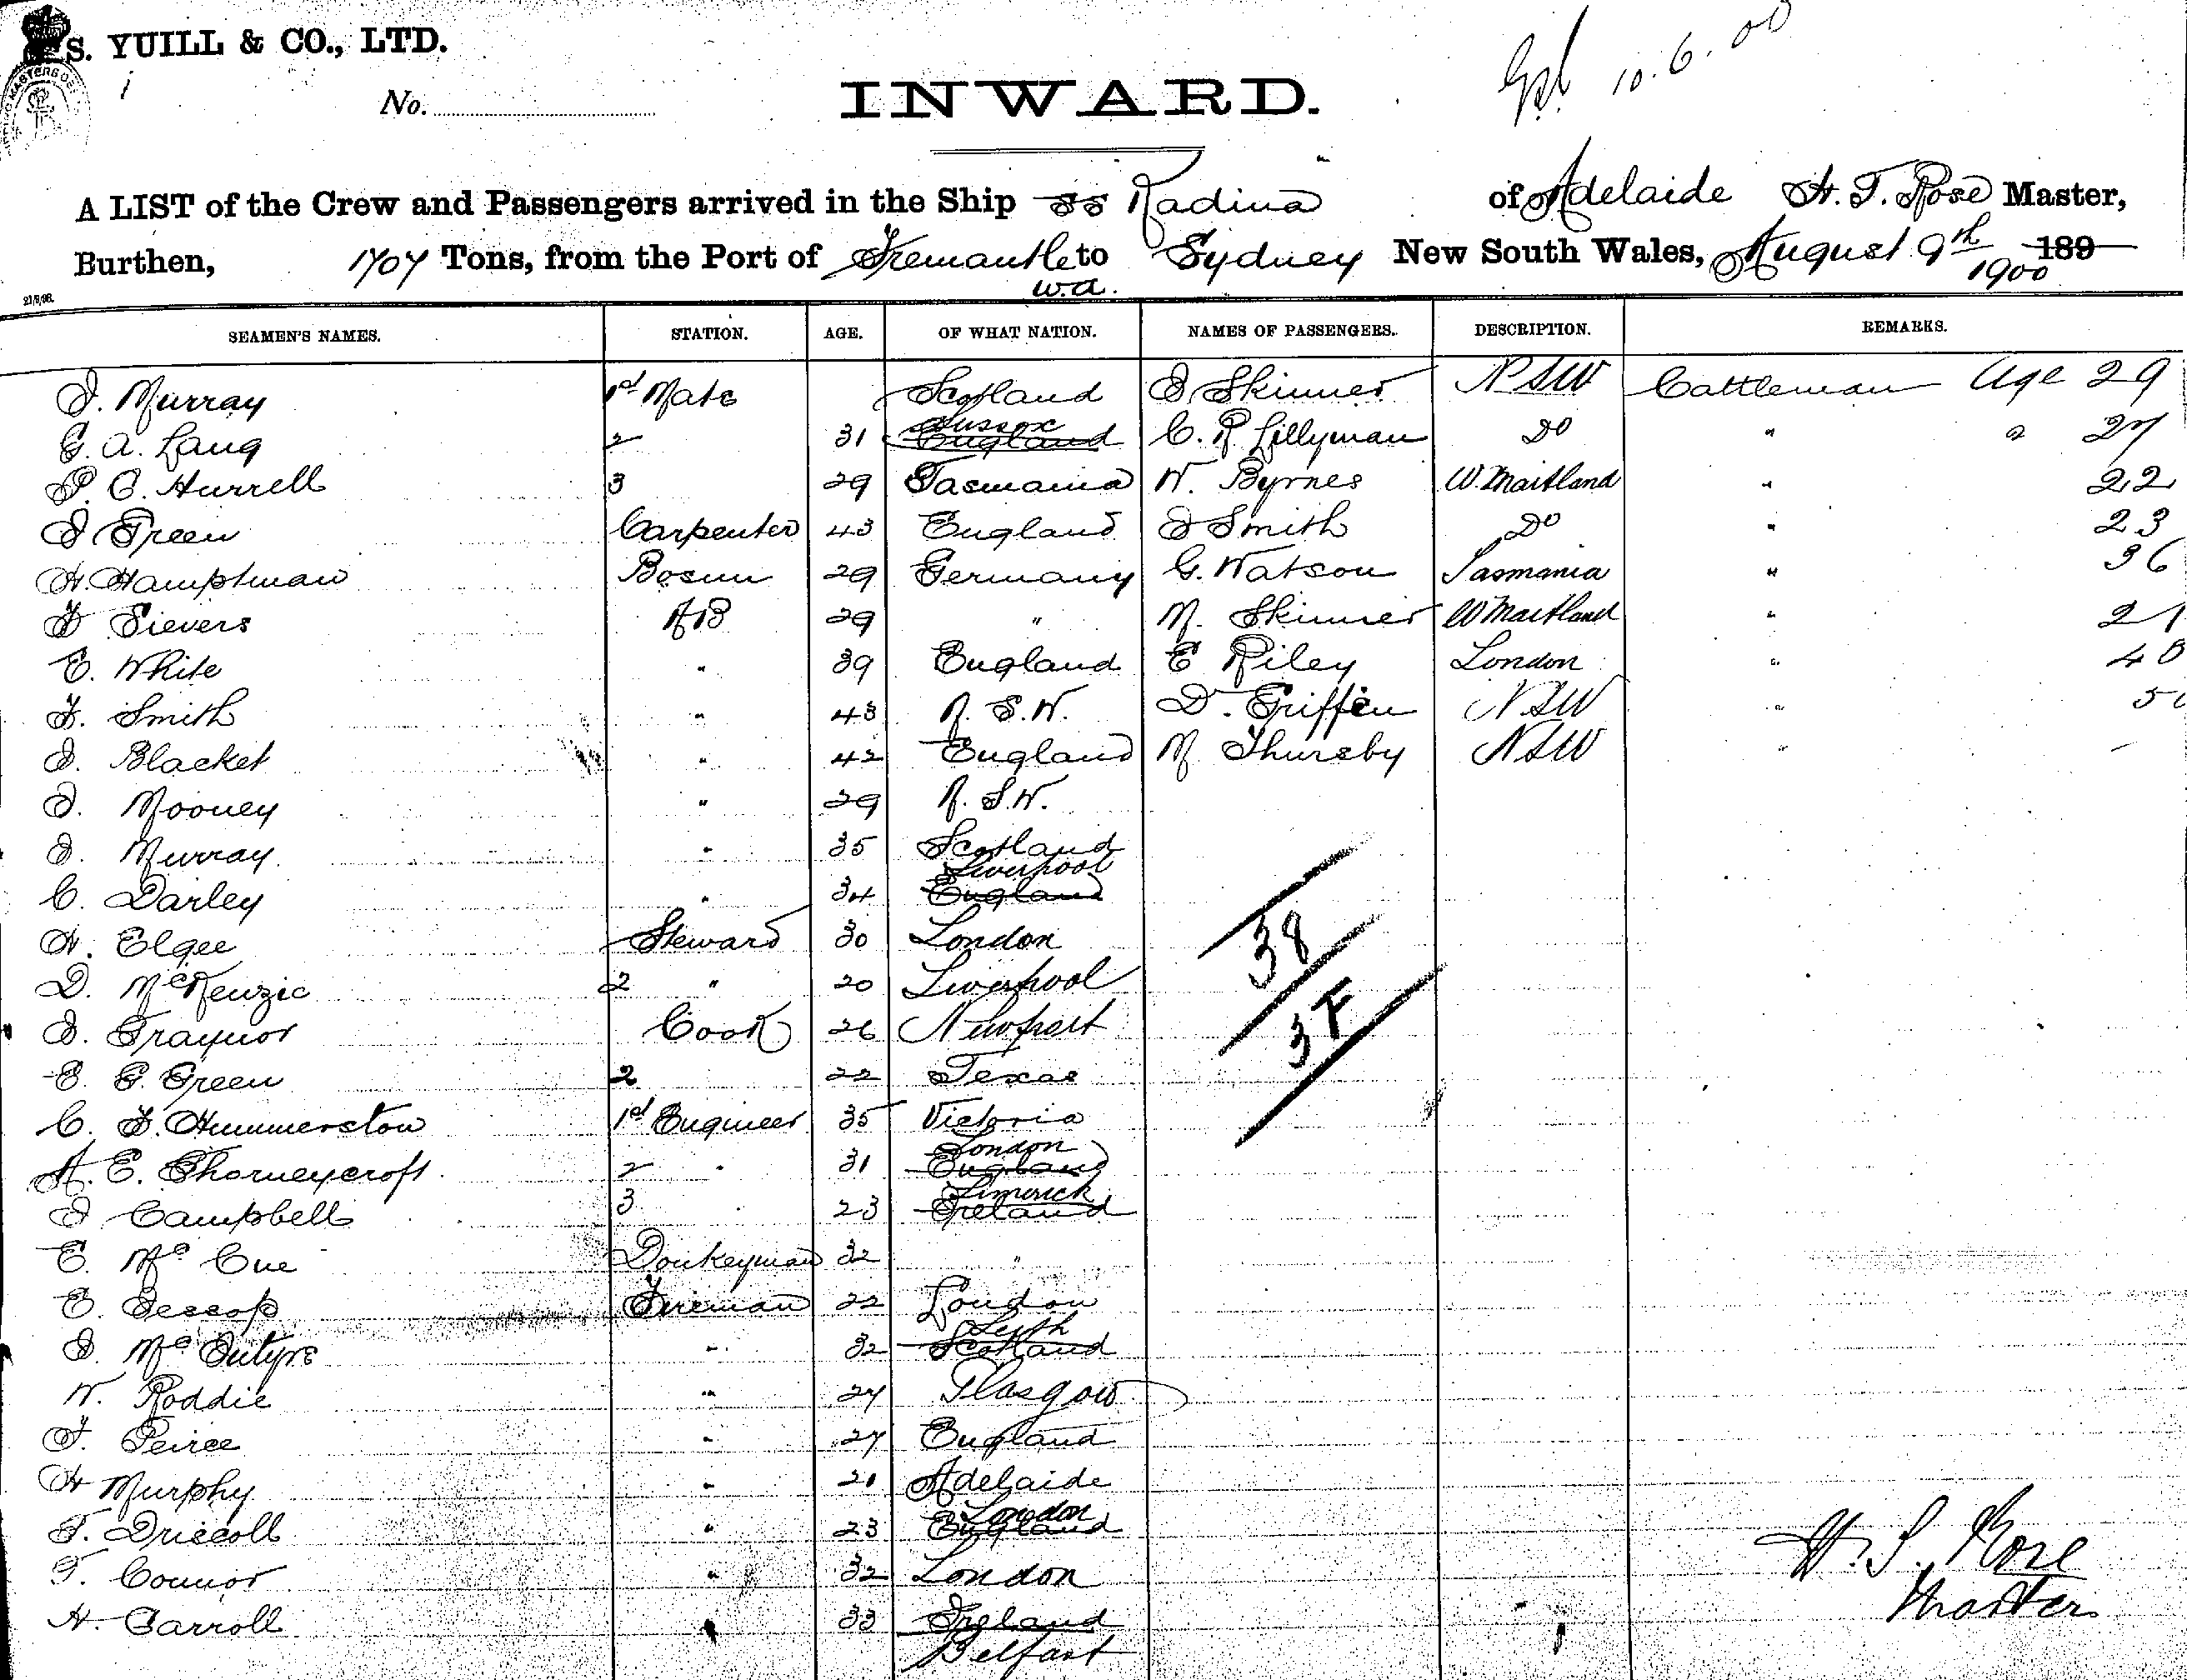 S. YUILL & CO., LTD.
No.
INWARD.
10.6.00
A LIST of the Crew and Passengers arrived in the Ship SS Kadina of Adelaide H. T. Rose Master,
Burthen, 1707 Tons, from the Port of Fremantle W.A. to Sydney New South Wales, August 9th 189 1900
21/8/98.
SEAMEN'S NAMES. STATION. AGE. OF WHAT NATION. NAMES OF PASSENGERS. DESCRIPTION. REMARKS.
J. Murray 1st Mate Scotland J Skinner NSW Cattleman Age 29
G. A. Lang 2 31 England Sussex C. R. Lillyman Do " " 27
P. C. Hurrell 3 29 Tasmania W. Byrnes W. Maitland " 22
J Green Carpenter 43 England J Smith Do " 23
H. Hamptman Bosun 29 Germany G. Watson Tasmania " 36
F Sievers AB 29 " M. Skinner W Maitland " 21
E. White " 39 England E Riley London " 40
F. Smith " 43 N. S. W. D. Griffin NSW "
J. Blacket " 42 England M Thursby NSW " -
J. Mooney " 29 N. S. W.
J. Murray " 35 Scotland
C. Darley " 34 England Liverpool
H. Elgee Steward 30 London
D. McKenzie 2 " 20 Liverpool
J. Traynor Cook 26 Newport
E. G. Green 2 22 Texas
C. F. Hummerston 1st Engineer 35 Victoria
A. E. Thorneycroft 2 " 31 England London
J Campbell 3 23 Ireland Limerick
E. Mc Cue Donkeyman 32 "
E. Jessop Fireman 22 London
J. Mc Intyre " 32 Scotland Leith
W. Roddie " 27 Glasgow
F. Peirce " 27 England
H Murphy " 21 Adelaide
T. Driscoll " 23 England London
T. Connor " 32 London
H. Carroll " 33 Ireland Belfast
38
3F
H. T. Rose
Master